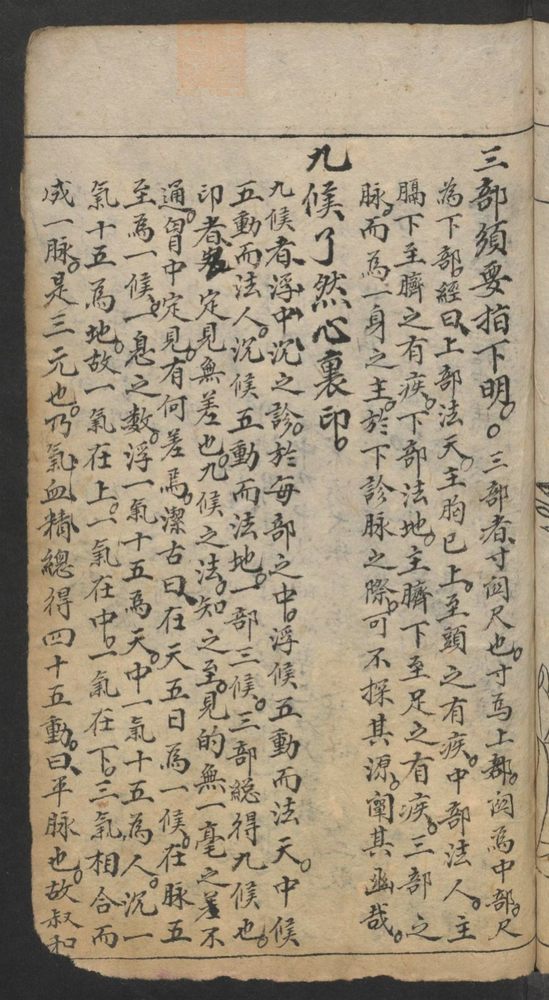 三部須要指下明。。三部者、寸関尺也。寸為上部。関為中部。尺
為下部。經曰、上部法天。主胸已上。至頭之有疾。中部法人。主
膈下至臍之有疾。下部法地。主臍下至足之有疾。三部之
脉。而為一身之主。於下診脉之際。可不探其源。闡其幽哉。
九候了然心裏印。
九候者、浮中沉之診。於每部之中。浮候五動而法天。中候
五動而法人。沉候五動而法地。一部三候。三部総得九候也。
印者、定見無差也。九候之法。知之至。見的無一毫之差。不
通胃中定見。有何差焉。潔古曰、在天五日為一候。在脉五
至為一候。一息之數。浮一氣十五為天。中一氣十五為人。沉一
氣十五為地。故一氣在上。一氣在中。一氣在下。三氣相合而
成一脉。是三元也。乃氣血精總得四十五動。曰平脉也。故叔和